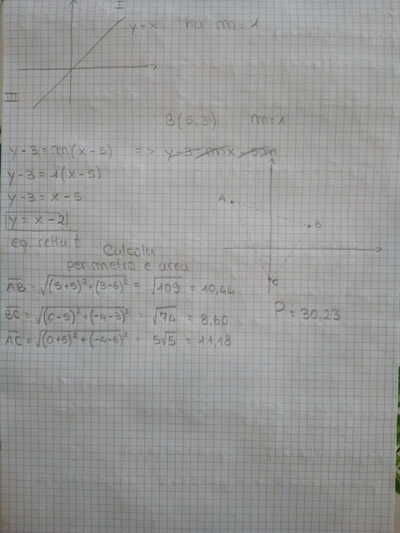 I
y = x ha m = 1
III
B(5,3) m=1
y-3=m(x-5) => y-3=mx-5m
y-3=1(x-5)
y-3=x-5
y=x-2
eq. retta t
A
B
C
Calcolo
perimetro e area
AB=√(5+5)²+(3-6)² = √109 = 10,44
BC=√(0-5)²+(-4-3)² = √74 = 8,60
AC=√(0+5)²+(-4-6)² = 5√5 = 11,18
P = 30,23